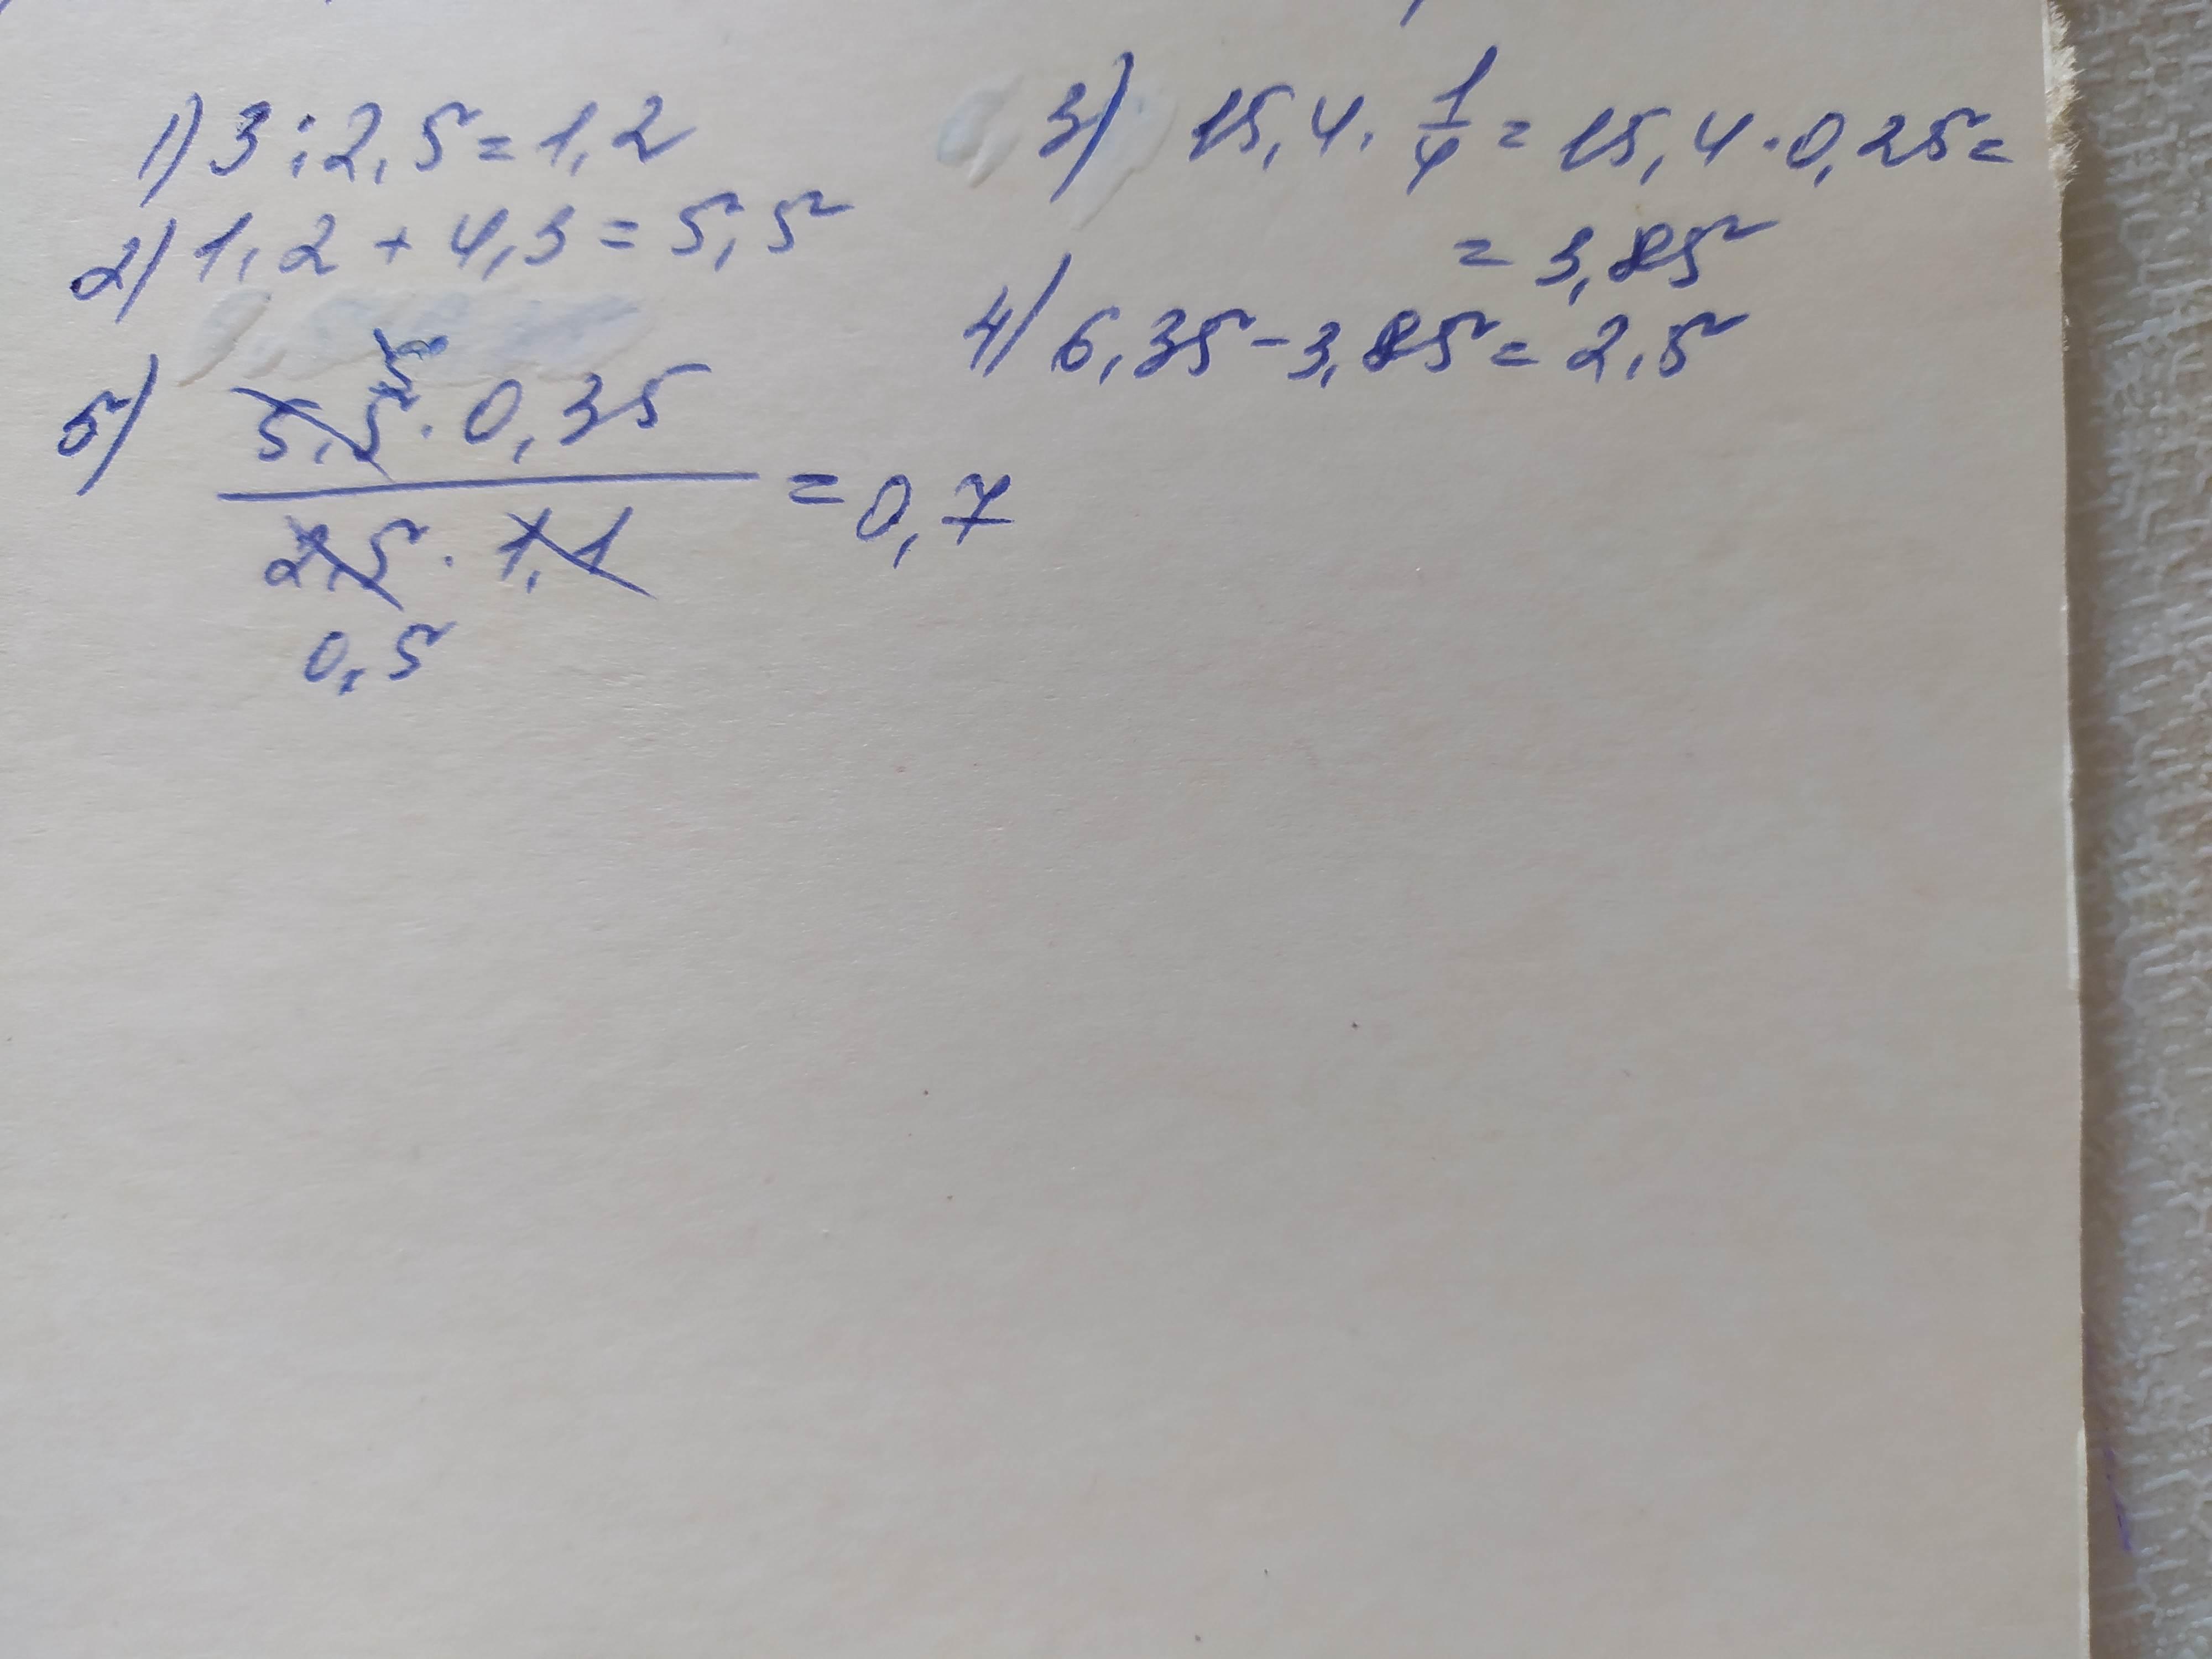 1) 3 : 2,5 = 1,2
2) 1,2 + 4,3 = 5,5
3) 15,4 · 1/4 = 15,4 · 0,25 =
= 3,85
4) 6,35 - 3,85 = 2,5
5
5) 5,5 · 0,35
2,5 · 1,1 = 0,7
0,5